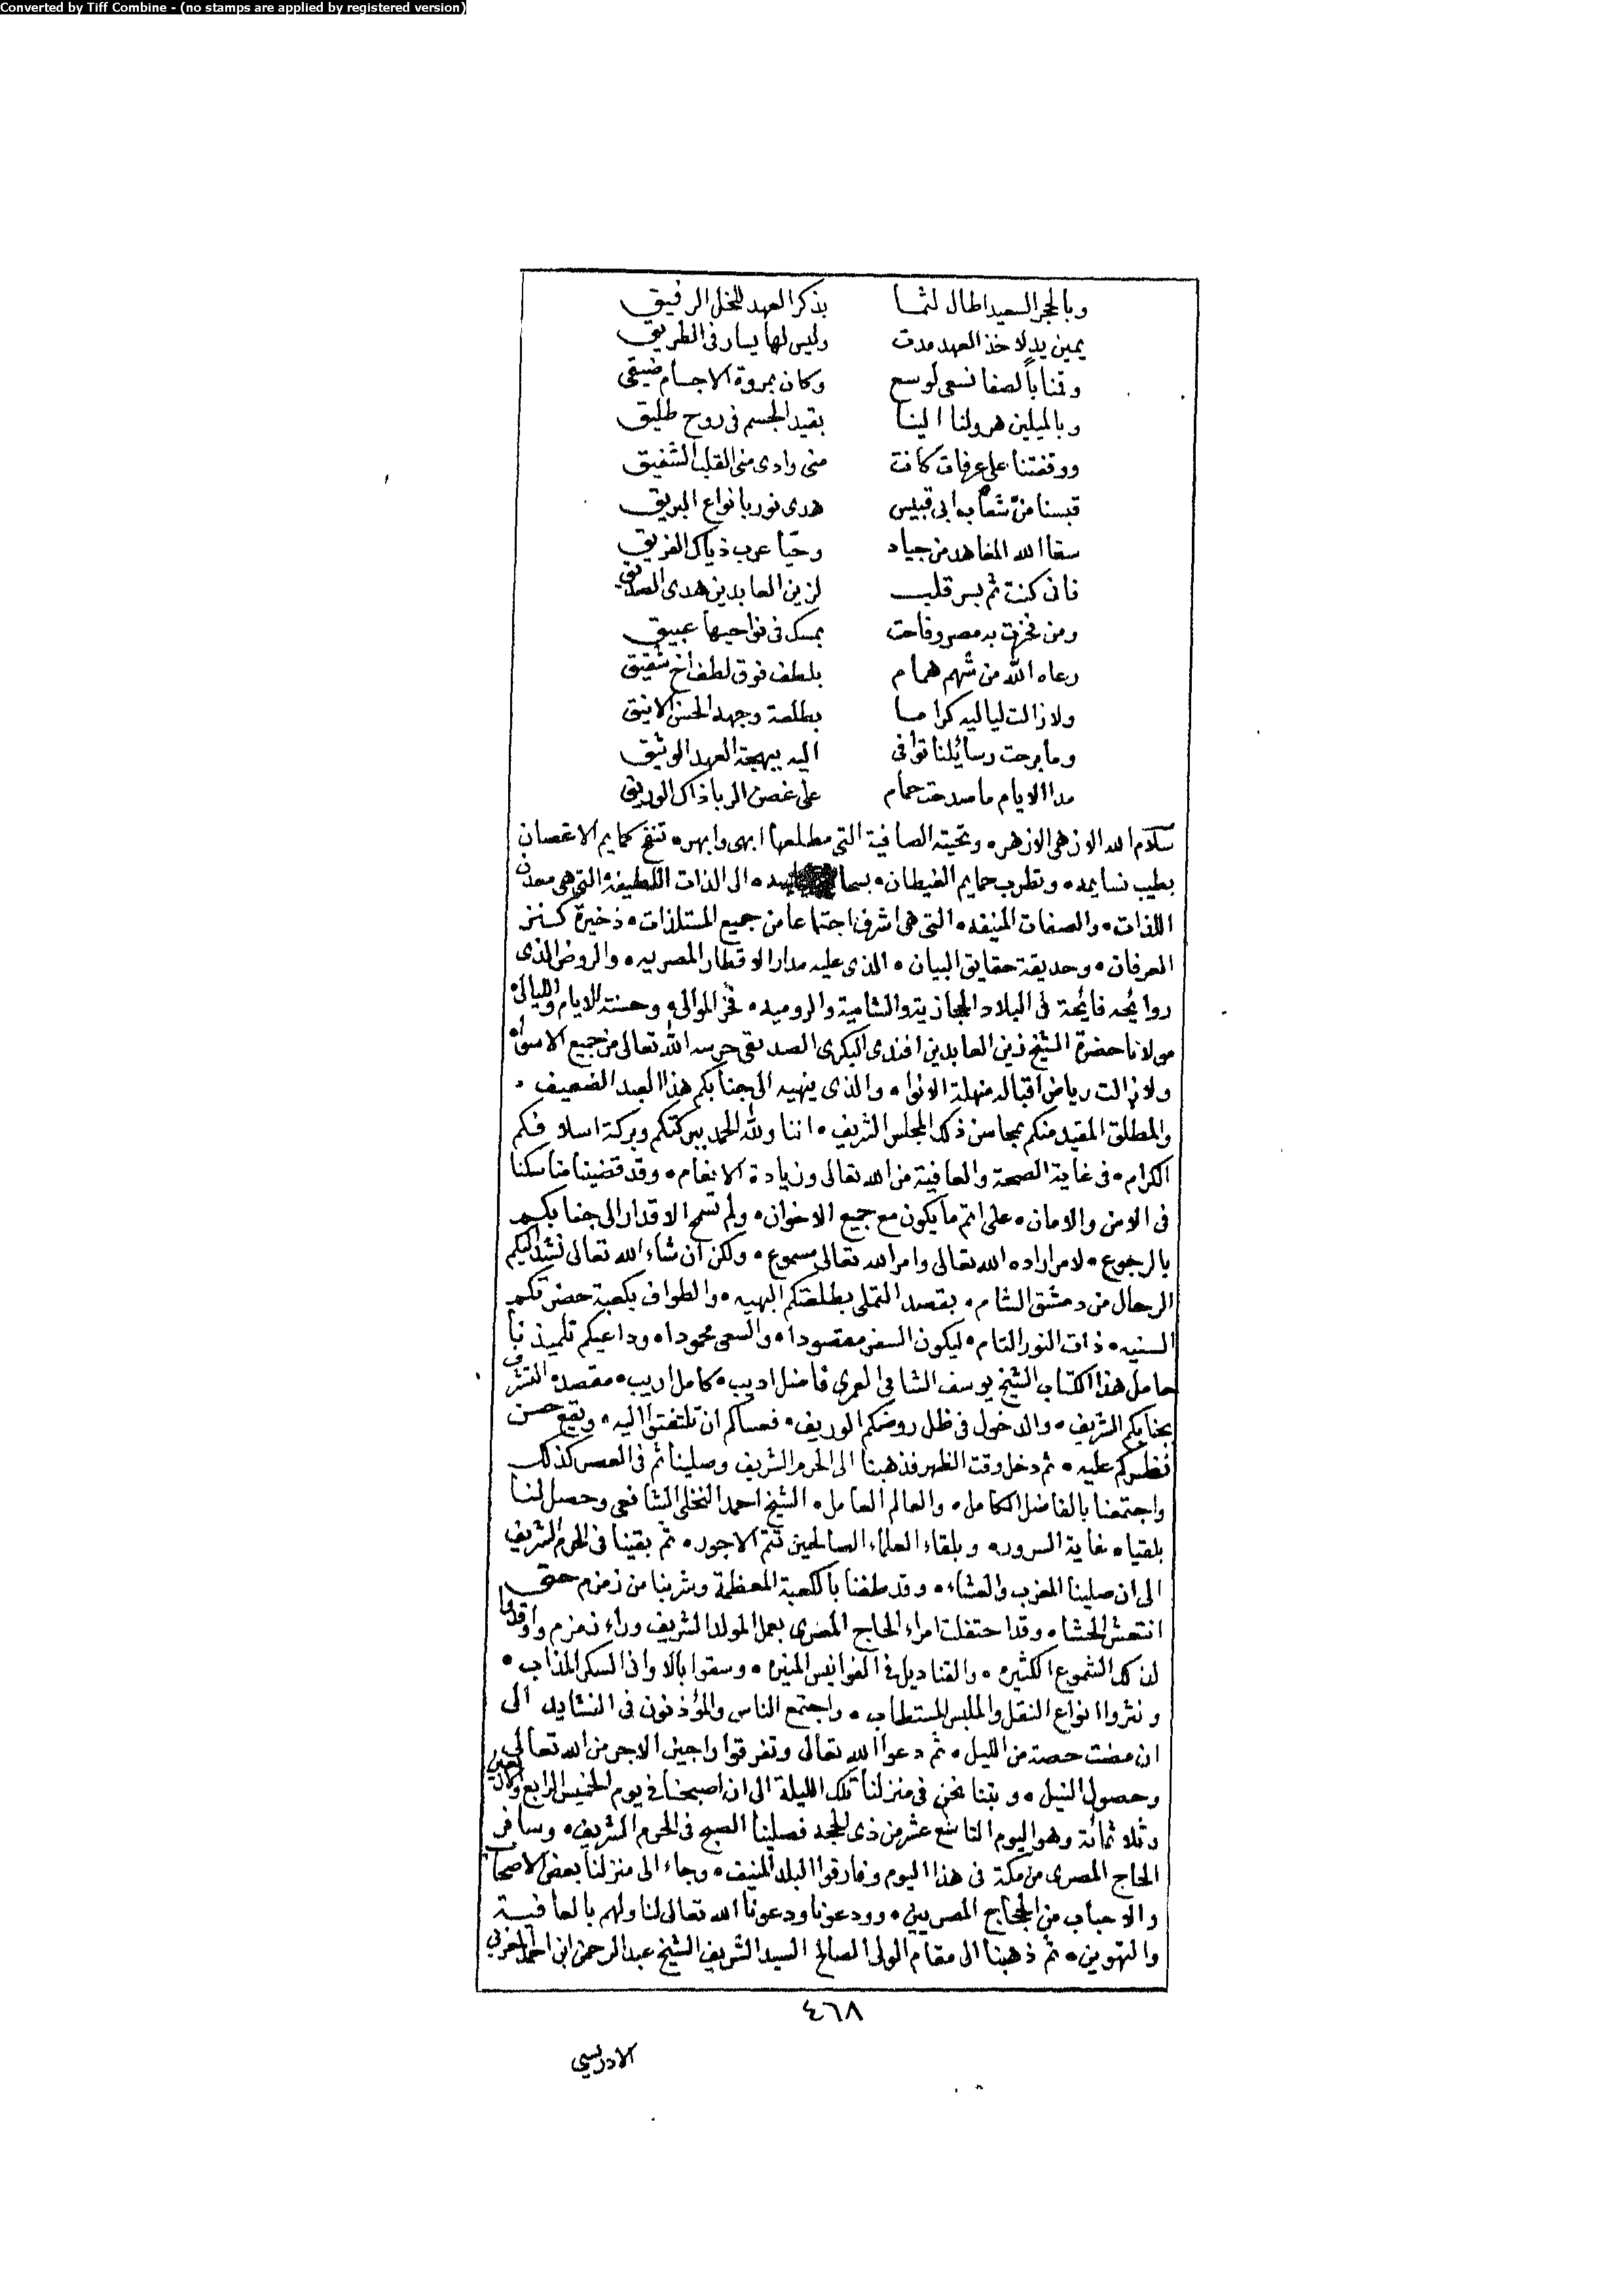 Converted by Tiff Combine - (no stamps are applied by registered version)
وبالحجر السعيد اطال لثما بذكر العهد للخل الرفيق
يمين يد لاخذ العهد مدت وليس لها يسار في الطريق
وقمنا بالصفا نسعى لوسع وكان بمروة الاجسام ضيقي
وبالميلين هرولنا الينا بقيد الجسم في روح طليق
ووقفتنا على عرفات كانت منى وادى منى القلب الشفيق
قبسنا من شعاب ابى قبيس هدى نور بانواع البريق
سقا الله المعاهد من جياد وحيا عرب ذياك الفريق
فانى كنت ثم بسر قلب لزين العابدين هدى الصديق
ومن فخرت به مصر وفاحت بمسك في نواحيها عبيق
رعاه الله من شهم همام بلطف فوق لطف اخ شقيق
ولا زالت لياليه كراما بطلعة وجهه الحسن الانيق
وما برحت رسائلنا توافى اليه ببهجة العهد الوثيق
مدا الايام ما صدحت حمام على غصن الربا ذاك الوريق
سلام الله الازهى الازهر ۰ وتحيته الصافية التي مطلعها ابهى وابهر ۰ تنفح كمايم الاغصان
بطيب نسايمه ۰ وتطرب حمايم الغيطان ۰ الى الذات اللطيفة التي هي معدن
اللذات ۰ والصفات المنيفه ۰ التي هي اشرف اجتماعا من جميع المستلذات ۰ ذخيرة كنز
العرفان ۰ وحديقة حقايق البيان ۰ الذى عليه مدار الاقطار المصريه ۰ والروض الذى
روايحه فايحة في البلاد الحجازية والشامية والروميه ۰ فخر الموالى ۰ وحسنة الايام والليالى ۰
مولانا حضرة الشيخ زين العابدين افندى البكرى الصديقي حرسه الله تعالى من جميع الاسواه
ولا زالت رياض اقباله منهلة الانوا ۰ والذى ينهيه الى جنابكم هذا العبد الضعيف ۰
والمطلق المقيد منكم بمحاسن ذلك المجلس الشريف ۰ اننا ولله الحمد ببركتكم وبركة اسلافكم
الكرام ۰ في غاية الصحة والعافية من الله تعالى وزيادة الانعام ۰ وقد قضينا مناسكنا
في الامن والامان ۰ على اتم ما يكون مع جميع الاخوان ۰ ولم تسمح الاقدار الى جنابكم
بالرجوع ۰ لامر اراده الله تعالى وامر الله تعالى مسموع ۰ ولكن ان شاء الله تعالى نشد اليكم
الرحال من دمشق الشام ۰ بقصد التملى بطلعتكم البهيه ۰ والطواف بكعبة حضرتكم
السنيه ۰ ذات النور التام ۰ ليكون السفر مقصودا ۰ والسعى محمودا ۰ وداعيكم تلميذنا
حامل هذا الكتاب الشيخ يوسف الشافى العمرى فاضل اديب ۰ كامل اريب ۰ مقصده التشرف
بجنابكم الشريف ۰ والدخول في ظل روضكم الوريف ۰ فعساكم ان تلتفتوا اليه ۰ ويقع حسن
نظركم عليه ۰ ثم دخل وقت الظهر فذهبنا الى الحرم الشريف وصلينا ثم في العصر كذلك
واجتمعنا بالفاضل الكامل ۰ والعالم العامل ۰ الشيخ احمد النخلى الشافعى وحصل لنا
بلقياه غاية السرور ۰ وبلقاء العلماء الصالحين تتم الاجور ۰ ثم بقينا في الحرم الشريف
الى ان صلينا المغرب والعشاء ۰ وقد طفنا بالكعبة المعظمة وشربنا من زمزم حتى
انتعش الحشا ۰ وقد احتفلت امراء الحاج المصرى بعمل المولد الشريف وراء زمزم واوقدوا
لذلك الشموع الكثيره ۰ والقناديل في الفوانيس المنيره ۰ وسقوا بالاوانى السكر المذاب ۰
ونثروا انواع النقل والملبس المستطاب ۰ واجتمع الناس والمؤذنون في النشايد الى
ان مضت حصة من الليل ۰ ثم دعوا الله تعالى وتفرقوا راجين الاجر من الله تعالى
وحصول النيل ۰ وبتنا نحن في منزلنا تلك الليلة الى ان اصبحنا في يوم الخميس الرابع والاربعين
وثلاثمائة وهو اليوم التاسع عشر من ذى الحجه فصلينا الصبح في الحرم الشريف ۰ وسافر
الحاج المصرى من مكة في هذا اليوم وفارقوا البلد المنيف ۰ وجاء الى منزلنا بعض الاصحاب
والاحباب من الحجاج المصريين ۰ وودعونا ودعونا الله تعالى لنا ولهم بالعافية
والتهوين ۰ ثم ذهبنا الى مقام الولى الصالح السيد الشريف الشيخ عبد الرحمن ابن احمد المغربى
٤٦٨
الادريسي